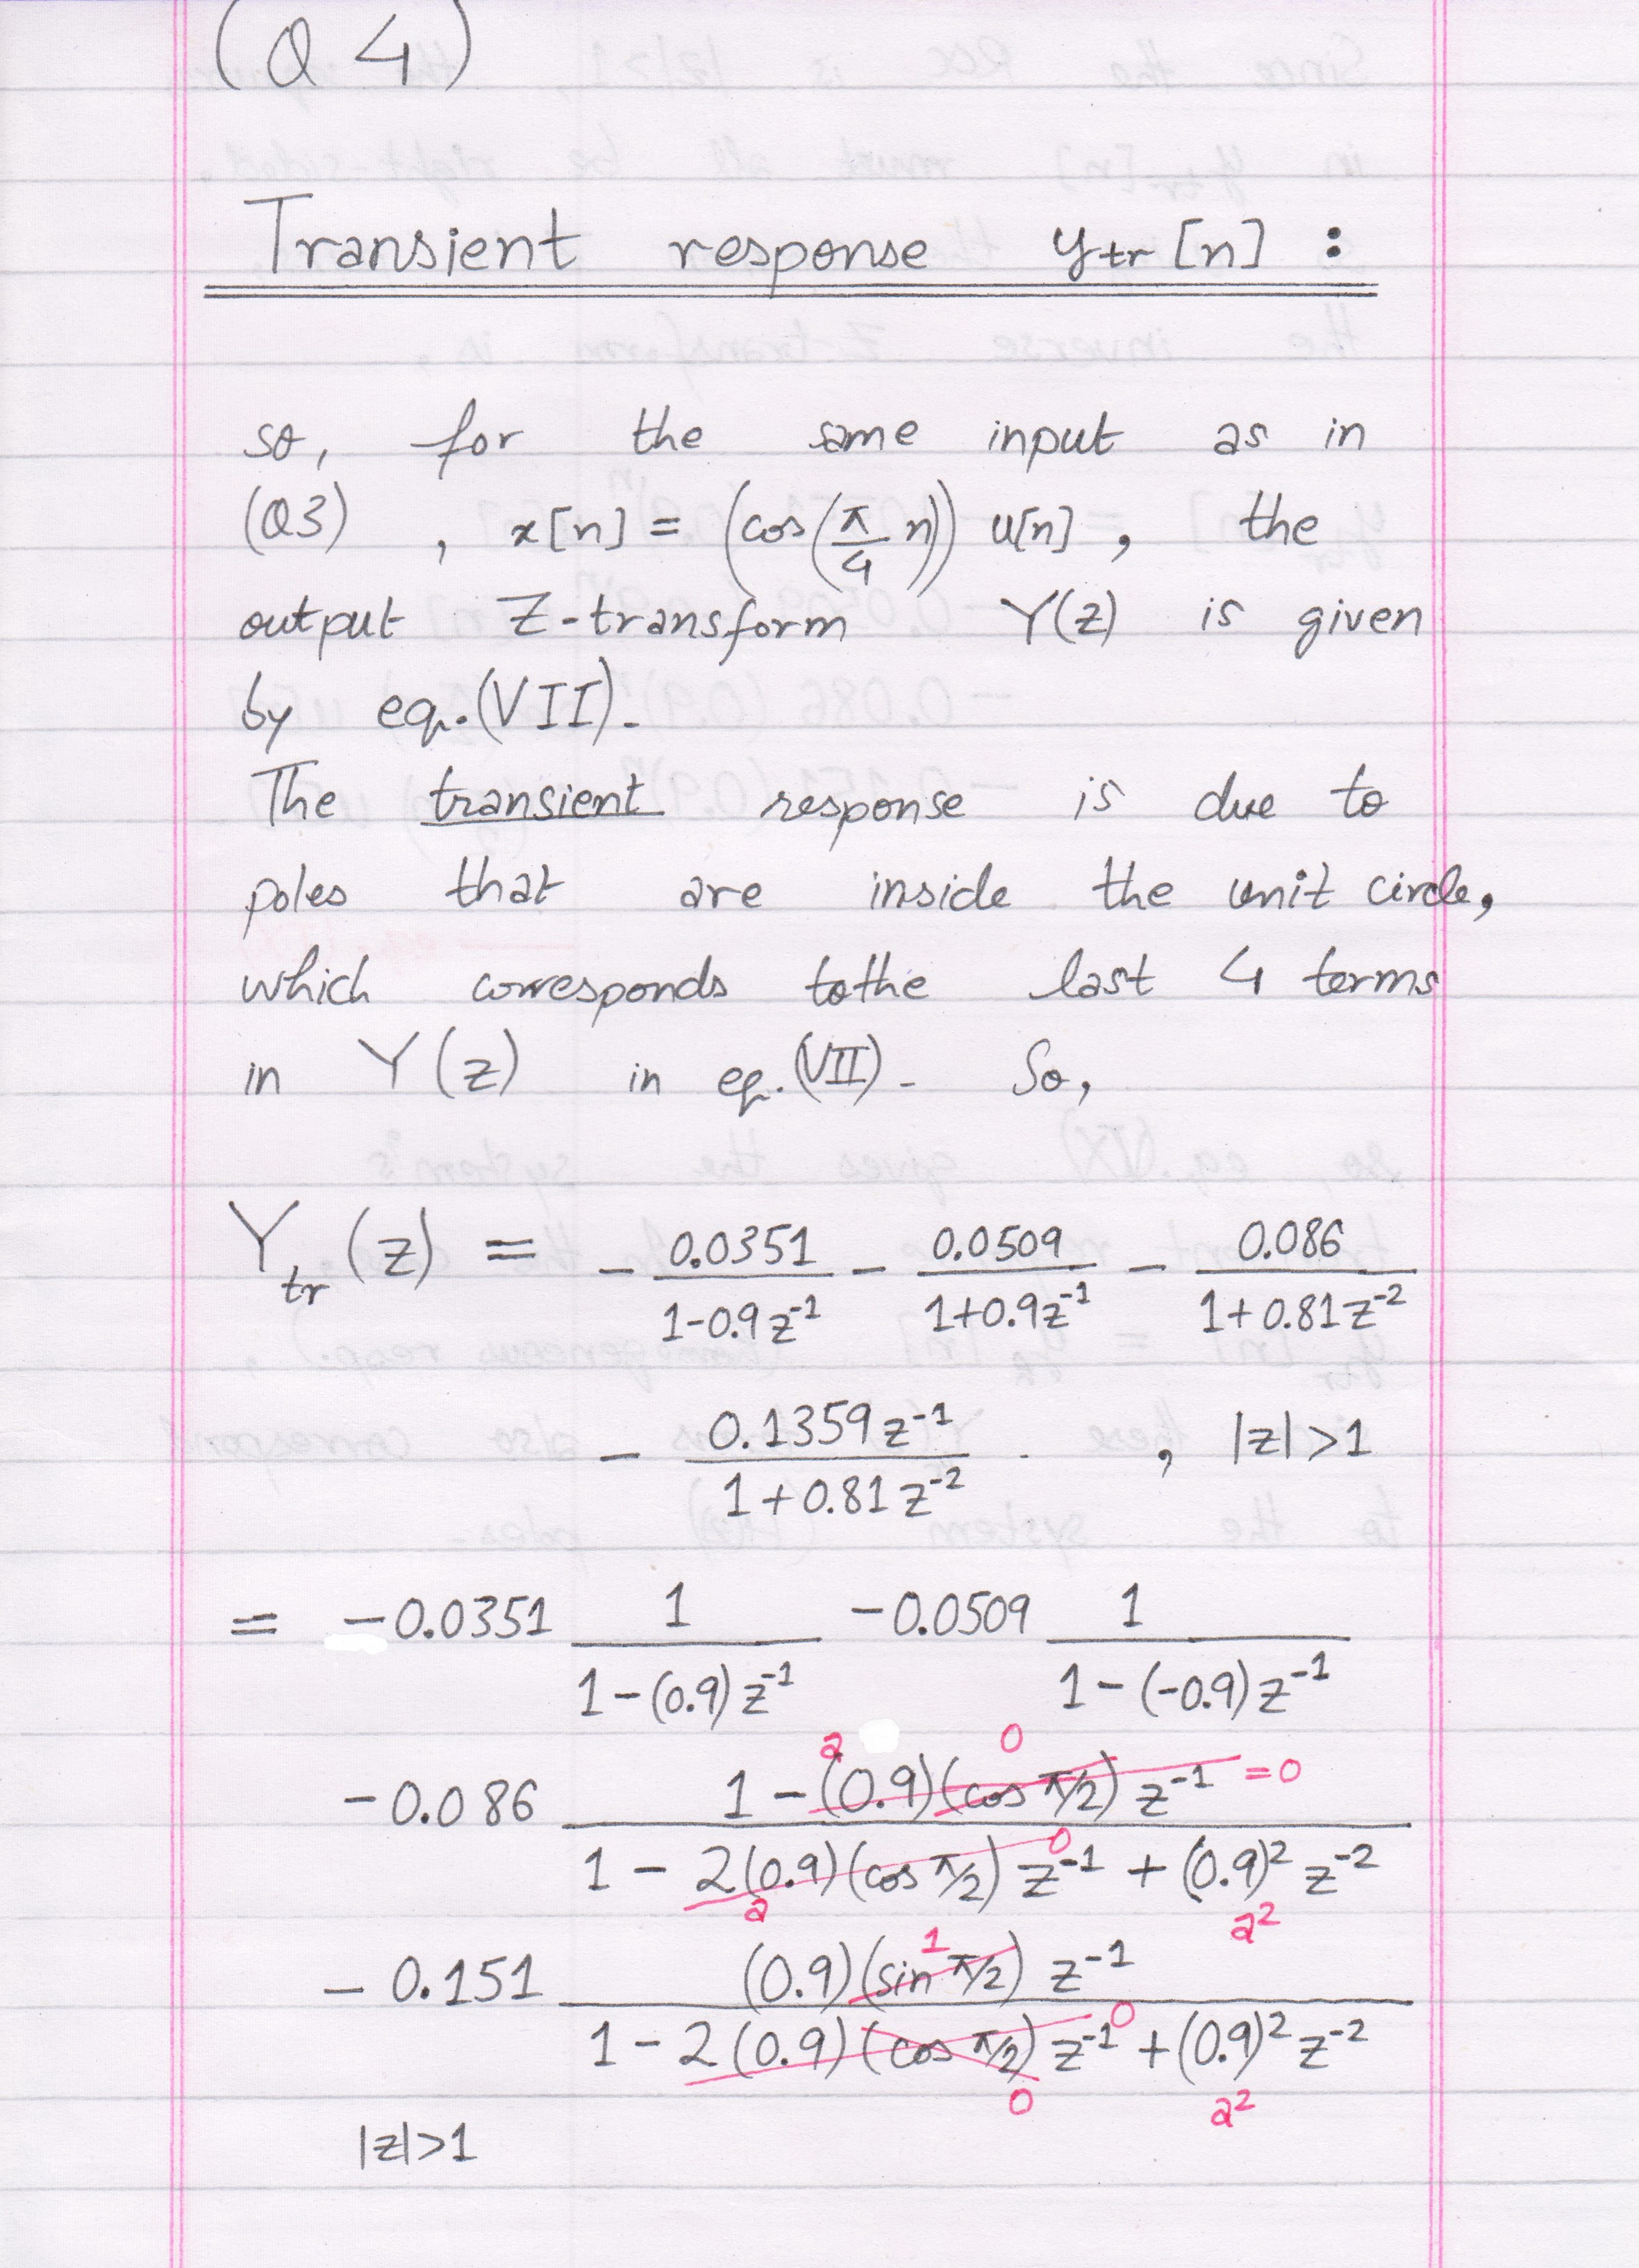 (Q4)
Transient response y_tr[n] :
so, for the same input as in
(Q3) , x[n] = (cos(π/4 n)) u[n] , the
output Z-transform Y(z) is given
by eq.(VII).
The transient response is due to
poles that are inside the unit circle,
which corresponds to the last 4 terms
in Y(z) in eq.(VII). So,
Y_tr(z) = - 0.0351/(1-0.9z^-1) - 0.0509/(1+0.9z^-1) - 0.086/(1+0.81z^-2)
- 0.1359z^-1/(1+0.81z^-2) , |z|>1
= -0.0351 1/(1-(0.9)z^-1) -0.0509 1/(1-(-0.9)z^-1)
a 0
-0.086 (1-(0.9)(cos π/2)z^-1)/(1-2(0.9)(cos π/2)z^-1+(0.9)^2 z^-2) =0
0
a a^2
1
-0.151 ((0.9)(sin π/2)z^-1)/(1-2(0.9)(cos π/2)z^-1+(0.9)^2 z^-2)
0
0 a^2
|z|>1